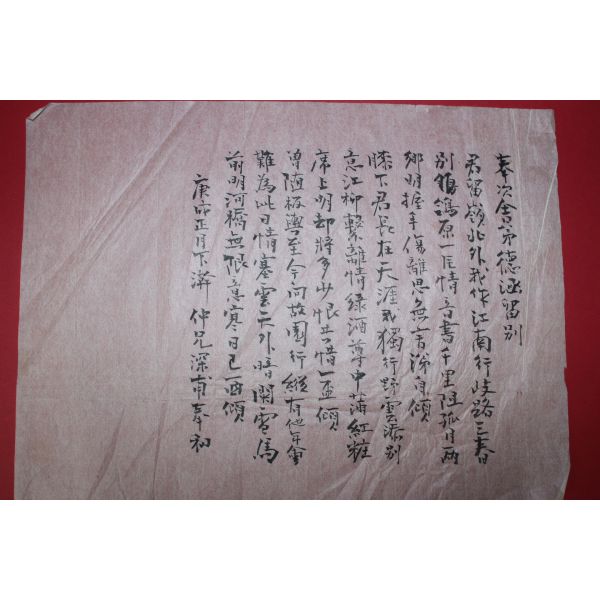 奉次舍弟德涵留別
君留嶺北外我作江南行岐路三春
別鶺鴒原一片情音書千里阻孤月兩
鄉明握手傷離思無言涕自傾
膝下君長在天涯我獨行野雲添別
意江柳繫離情綠酒尊中蒲紅粧
席上明却將多少恨共惜一盃傾
曾隨板輿至今向故園行縱有他年會
難為此日情塞雲天外暗關雪馬
前明河橋無限意寒日已西傾
庚戌正月下澣 仲兄深甫奉和